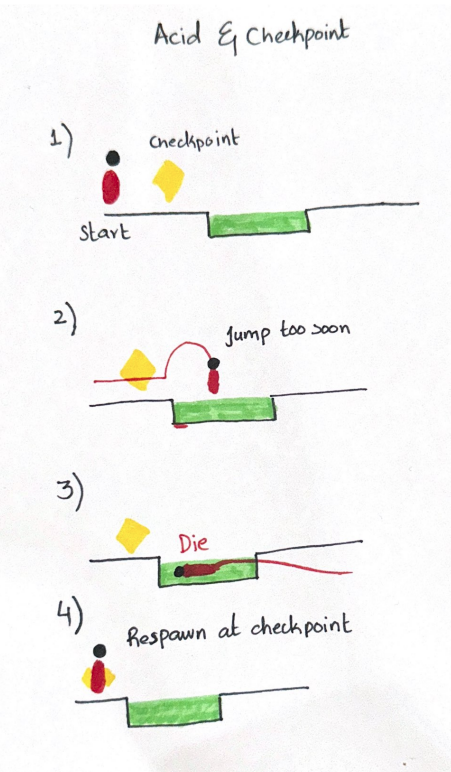 Acid & Checkpoint
1)
Checkpoint
Start
2)
Jump too soon
3)
Die
4)
Respawn at checkpoint